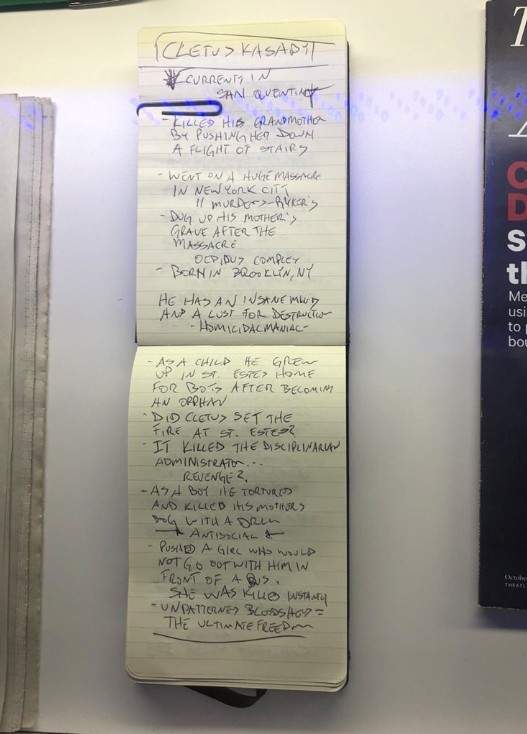 CLETUS KASADY
CURRENTS IN
SAN QUENTIN
- KILLED HIS GRANDMOTHER
BY PUSHING HER DOWN
A FLIGHT OF STAIRS
- WENT ON A HUGE MASSACRE
IN NEW YORK CITY
11 MURDERS - RYKER'S
- DUG UP HIS MOTHER'S
GRAVE AFTER THE
MASSACRE
OEDIPUS COMPLEX
- BORN IN BROOKLIN, NY
HE HAS AN INSANE MIND
AND A LUST FOR DESTRUCTION
- HOMICIDAL MANIAC -
- AS A CHILD HE GREW
UP IN ST. ESTES HOME
FOR BOYS AFTER BECOMING
AN ORPHAN
- DID CLETUS SET THE
FIRE AT ST. ESTES?
- IT KILLED THE DISCIPLINARIAN
ADMINISTRATOR...
REVENGE?
- AS A BOY HE TORTURED
AND KILLED HIS MOTHERS
DOG WITH A DRILL
ANTISOCIAL
- PUSHED A GIRL WHO WOULD
NOT GO OUT WITH HIM IN
FRONT OF A BUS.
SHE WAS KILLED INSTANTLY
- UNPATTERNED BLOODSHED =
THE ULTIMATE FREEDOM
Me
usi
to
bou
Octobe